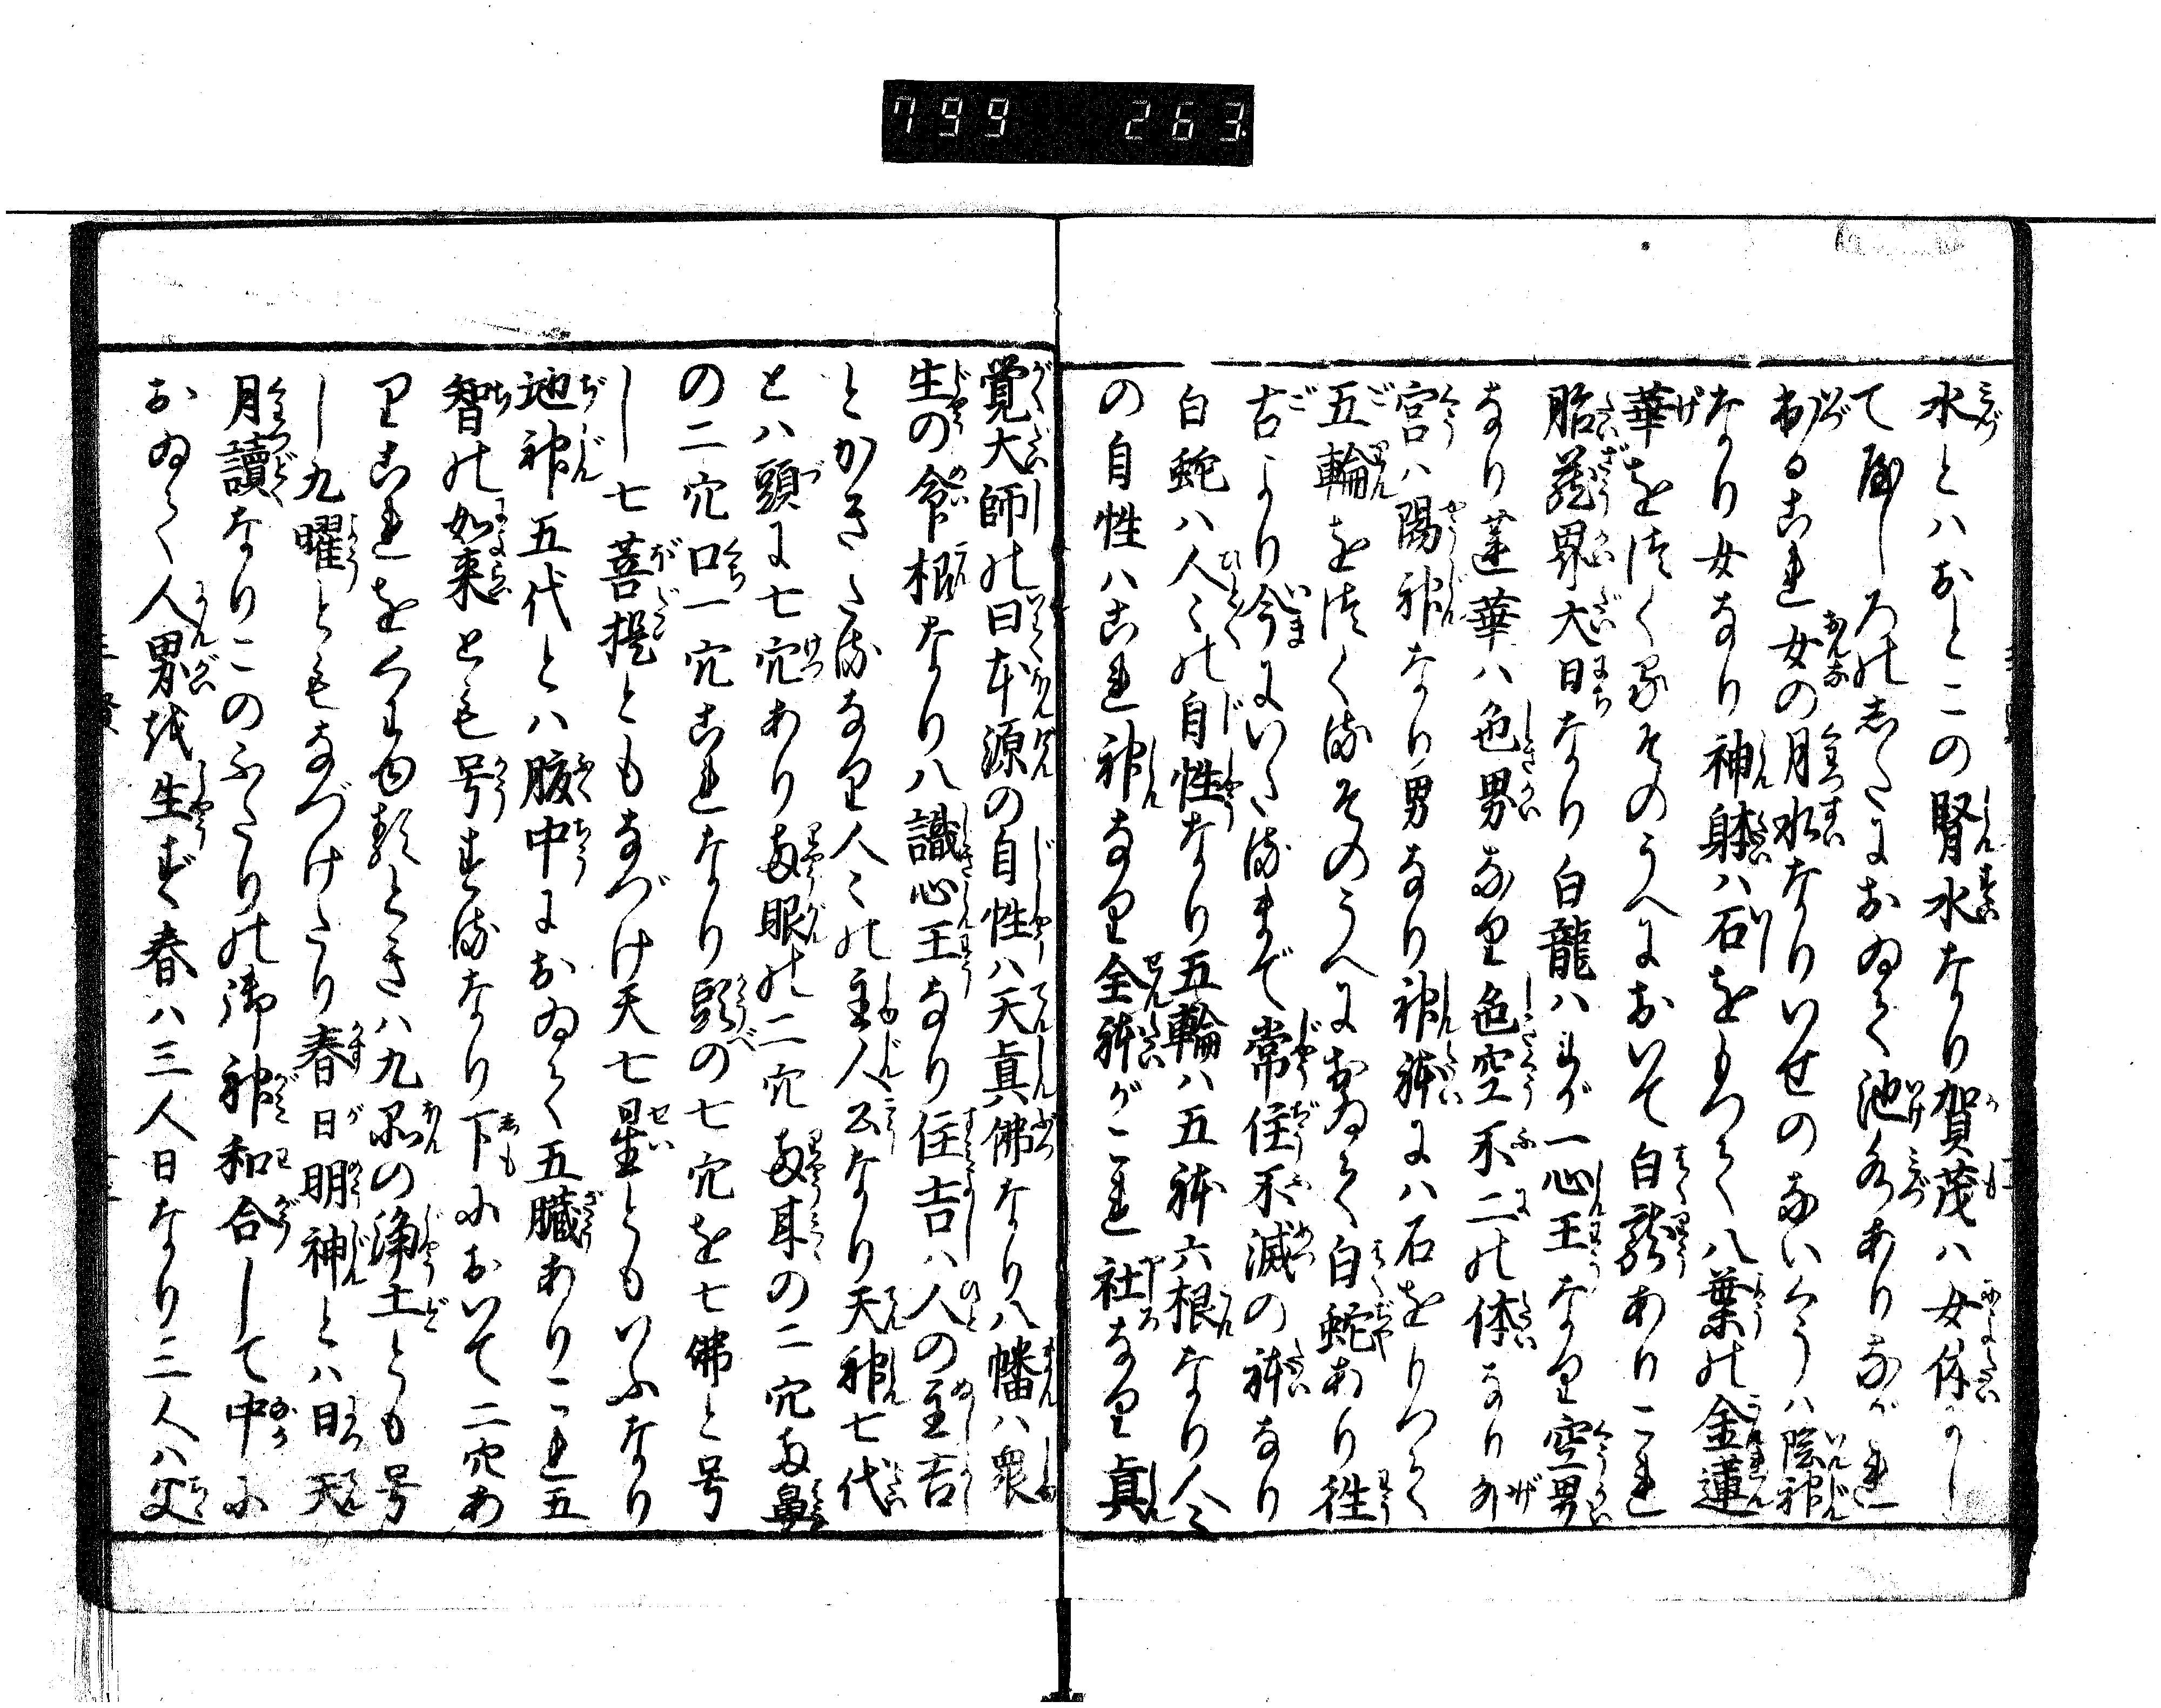 799 263
水とハおとこの腎水なり賀茂ハ女体にし
てやしろのしたにおゐて池水ありながれ
出るこれ女の月水なりいせのないくうハ陰神
なり女なり神躰ハ石をもつて八葉の金蓮
華をつくるそのうへにおいて白龍ありこれ
胎蔵界大日なり白龍ハ我が一心王なり空界
なり蓮華ハ色界なり色空不二の体なり外
宮ハ陽神なり男なり神躰にハ石をもつて
五輪をつくるそのうへにおゐて白蛇あり往
古より今にいたるまで常住不滅の躰なり
白蛇ハ人々の自性なり五輪ハ五躰六根なり今
の自性ハこれ神なり全躰がこれ社なり真
覚大師の曰本源の自性ハ天真佛なり八幡ハ衆
生の命根なり八識心王なり住吉ハ人の主吉
とかきたるなり人々の主人公なり天神七代
とハ頭に七穴あり両眼の二穴両耳の二穴両鼻
の二穴口一穴これなり頭の七穴を七佛と号
し七菩提ともなづけ天七星ともいふなり
地神五代とハ腹中におゐて五臓ありこれ五
智の如来とも号するなり下において二穴あ
りこれをくわゆるときハ九品の浄土とも号
し九曜ともなづけたり春日明神とハ日天
月讀なりこのふたりの御神和合して中に
おゐて人界を生ず春ハ三人日なり三人ハ父